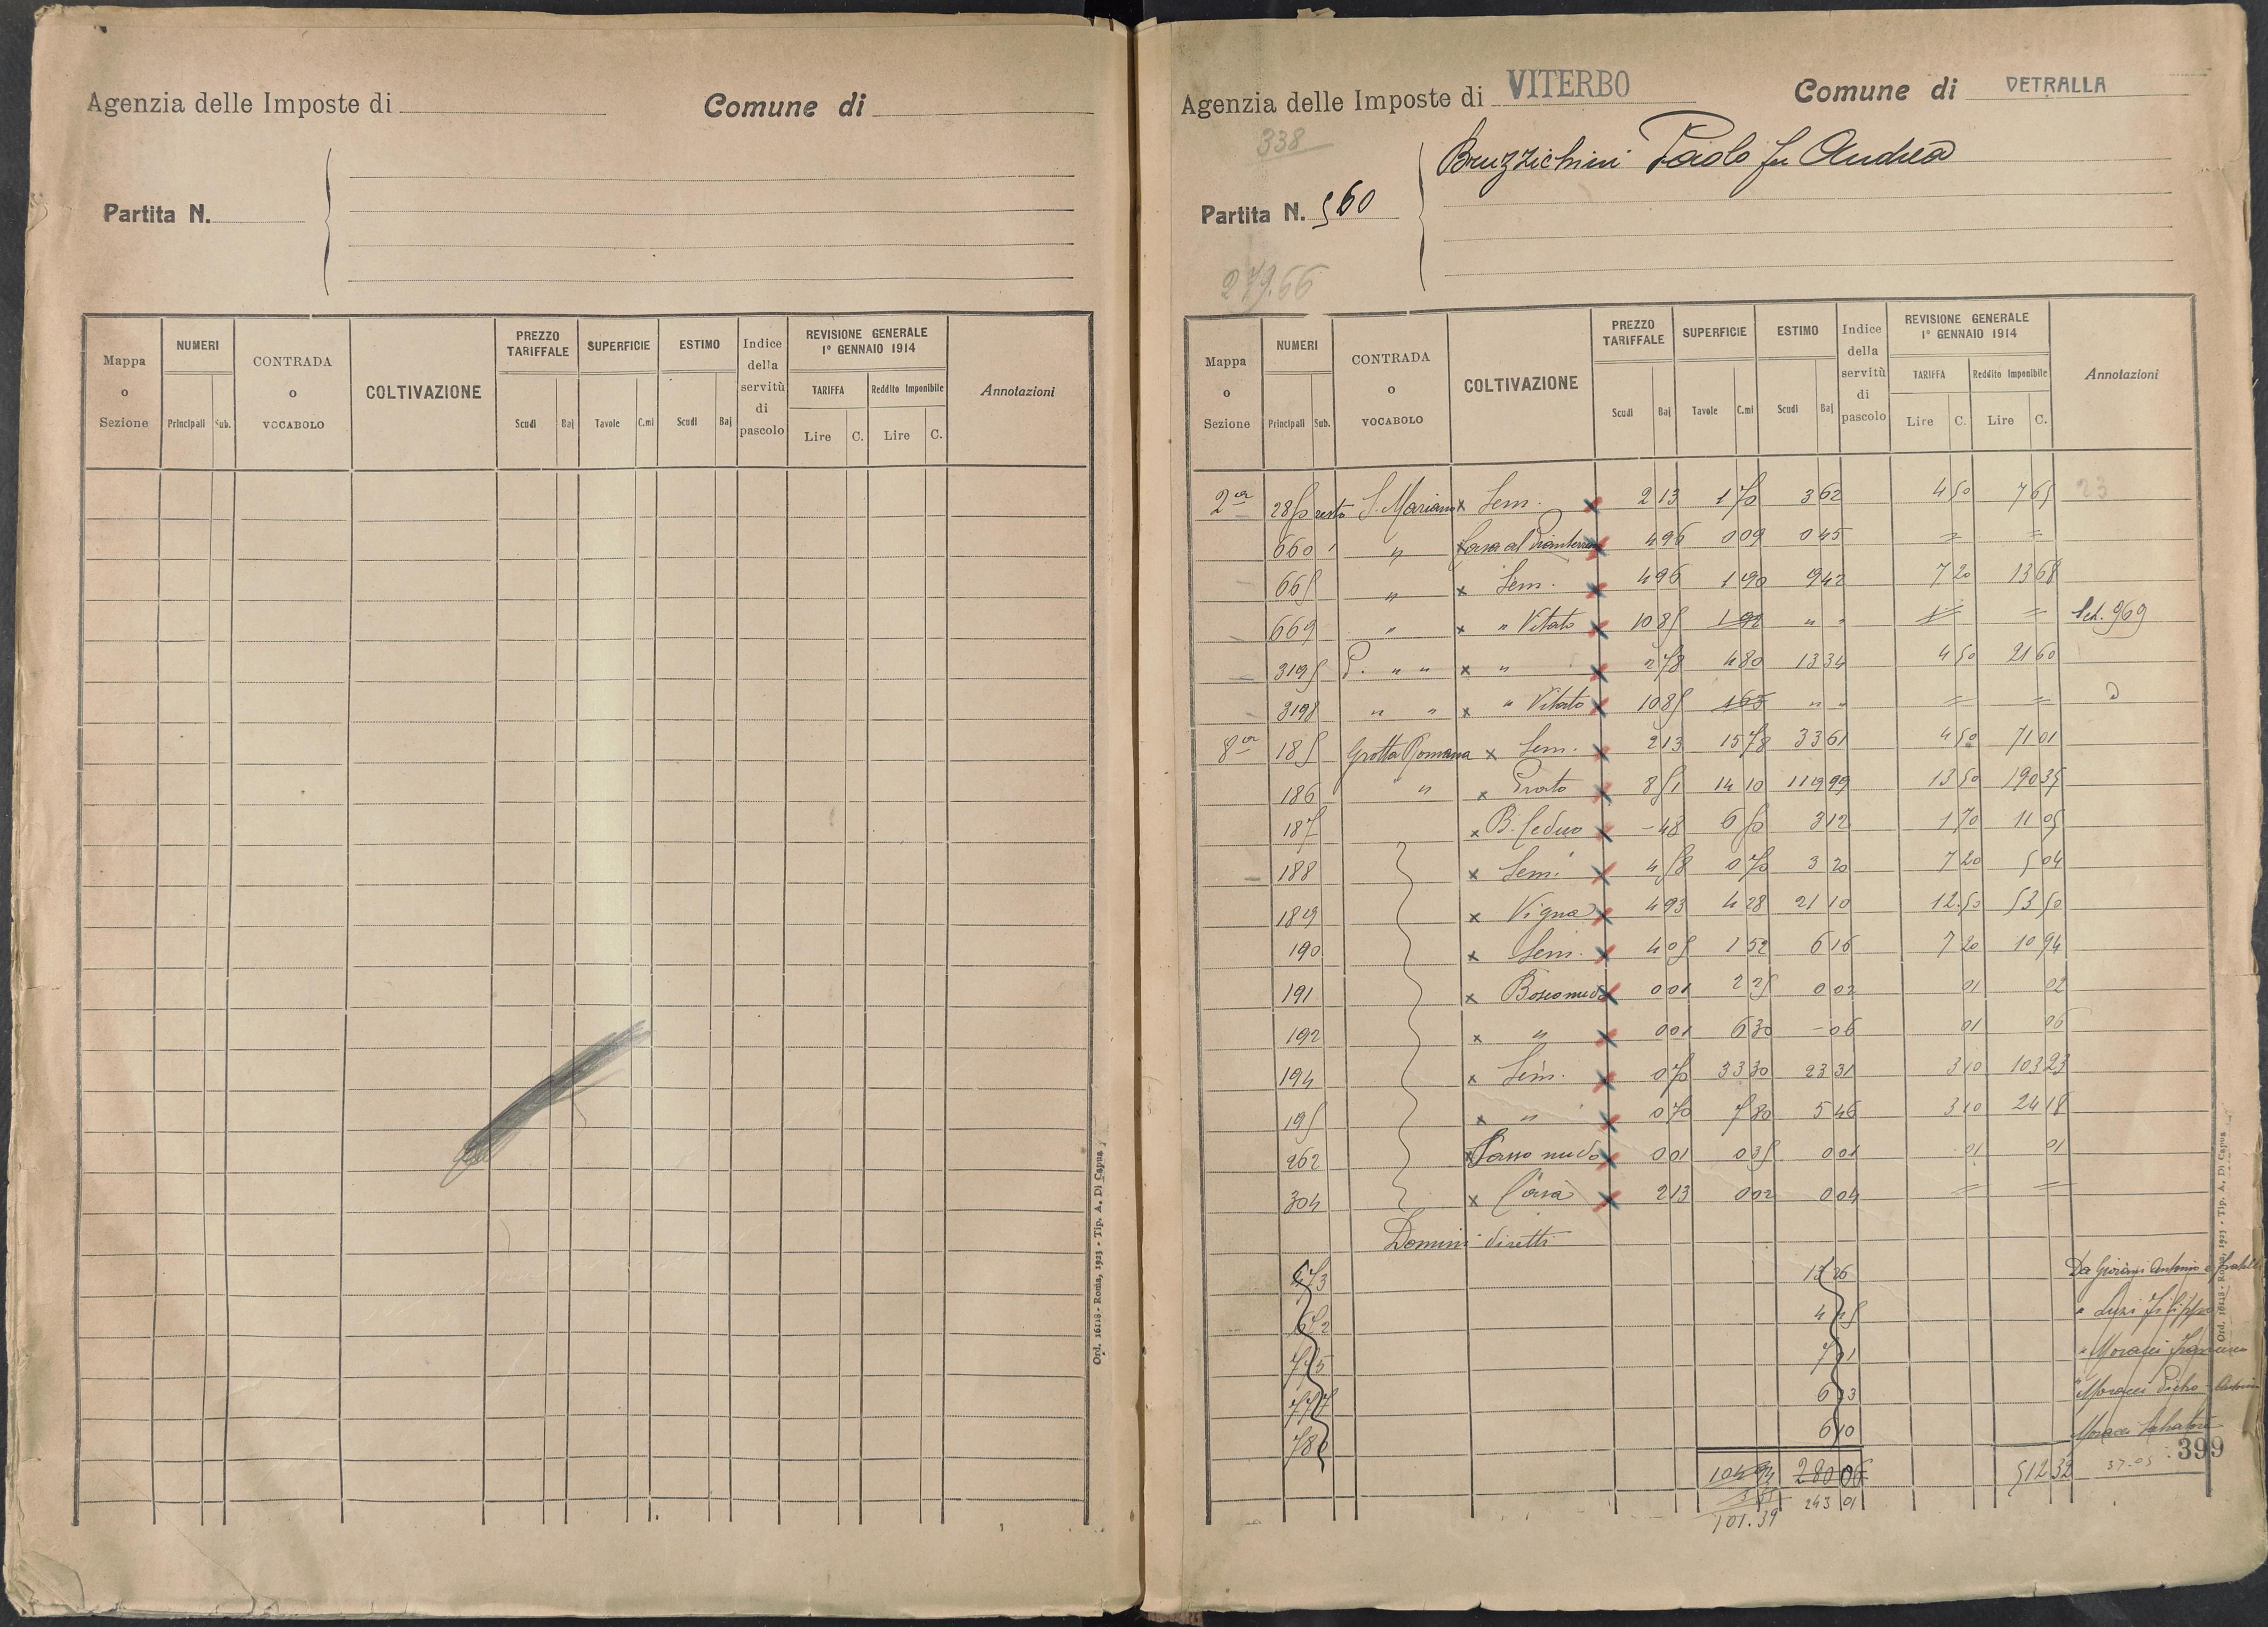 Agenzia delle Imposte di
Comune di
Partita N.
Mappa o Sezione
NUMERI
Principali Sub.
CONTRADA o VOCABOLO
COLTIVAZIONE
PREZZO TARIFFALE
Scudi Baj
SUPERFICIE
Tavole C.mi
ESTIMO
Scudi Baj
Indice della servitù di pascolo
REVISIONE GENERALE 1° GENNAIO 1914
TARIFFA
Lire C.
Reddito Imponibile
Lire C.
Annotazioni
Ord. 16118 - Roma, 1923 - Tip. A. Di Capua
Agenzia delle Imposte di VITERBO
Comune di VETRALLA
338
Bruzzichini Paolo fu Andrea
Partita N. 560
279.66
Mappa o Sezione
NUMERI
Principali Sub.
CONTRADA o VOCABOLO
COLTIVAZIONE
PREZZO TARIFFALE
Scudi Baj
SUPERFICIE
Tavole C.mi
ESTIMO
Scudi Baj
Indice della servitù di pascolo
REVISIONE GENERALE 1° GENNAIO 1914
TARIFFA
Lire C.
Reddito Imponibile
Lire C.
Annotazioni
2a resto S. Mariano x Sem. x 2 13 1 70 3 62 4 50 7 65 23
660 1 " x Casa al x 4 96 0 09 0 45 = =
665 " x Sem. x 4 96 1 90 9 42 7 20 13 68
669 " x " Vitato x 10 85 1 92 " " = 969
3195 " " x " x 2 78 4 80 13 34 4 50 21 60
3198 " " x " Vitato x 10 85 1 65 " " = =
8a 185 Grotta Romana x Sem. x 2 13 15 78 33 61 4 50 71 01
186 " x Prato x 8 51 14 10 119 99 13 50 190 35
187 x B. Ceduo x - 48 6 50 3 12 1 70 11 05
188 x Sem. x 4 58 0 70 3 20 7 20 5 04
189 x Vigna x 4 93 4 28 21 10 12.50 53 50
190 x Sem. x 4 05 1 52 6 16 7 20 10 94
191 x Bosco nudo x 0 01 2 25 0 02 01 02
192 x " x 0 01 6 30 - 06 01 06
194 x Sem. x 0 70 33 30 23 31 3 10 103 23
195 x " x 0 70 7 80 5 46 3 10 24 18
262 x Sasso nudo x 0 01 0 35 0 01 01 01
304 x Casa x 2 13 0 02 0 04 = =
Domini diretti
13 26 Da Antonio e fratelli
4 " Luzi Filippo
775 7 " Moracci Francesco
777 6 13 " Moracci Pietro
786 6 10 Moracci Salvatore
399
104 94 280 06 512 32 37.05
243 01
101.39
Ord. 16118 - Roma, 1923 - Tip. A. Di Capua